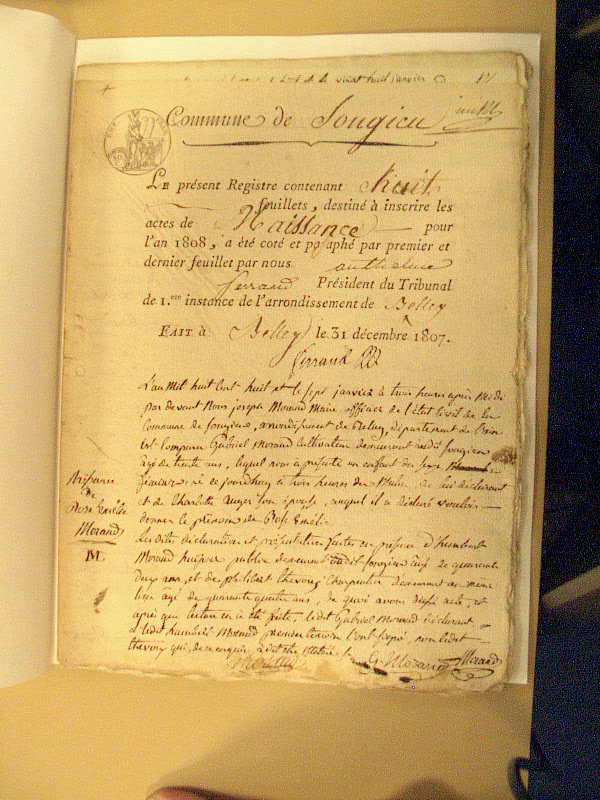 vingt huit janvier
Commune de Songieu
LE présent Registre contenant huit
feuillets, destiné à inscrire les
actes de Naissance pour
l'an 1808, a été coté et paraphé par premier et
dernier feuillet par nous anthelme
ferrand Président du Tribunal
de 1.ere instance de l'arrondissement de Belley
FAIT à Belley le 31 décembre 1807.
ferrand
L'an Mil huit Cent huit et le sept janvier à trois heures après Midi
par devant Nous joseph Morand Maire officier de l'état Civil de la
Commune de Songieu, arrondissement de Belley, département de l'ain
est Comparu Gabriel Morand Cultivateur demeurant audit Songieu
agé de trente ans, lequel nous a présenté un enfant du sexe
feminin, né ce jourdhuy à trois heures du Matin, de lui déclarant
et de Charlotte son épouse, auquel il a déclaré vouloir
donner le prénom de Rose Emélie
Les dites déclaration et présentation faites en présence d'humbert
Morand publics demeurant audit Songieu agé de quarante
deux ans, et de thevoz Charpentier demeurant au meme
lieu agé de quarante quatre ans, de quoi avons dressé acte, et
après que lecture en a été faite, ledit Gabriel Morand déclarant
et ledit humbert Morand premier témoin l'ont signé, non ledit
thevoz qui, de ce enquis, a dit
G Morand Morand
Naissance
de
Rose Emélie
Morand
M.